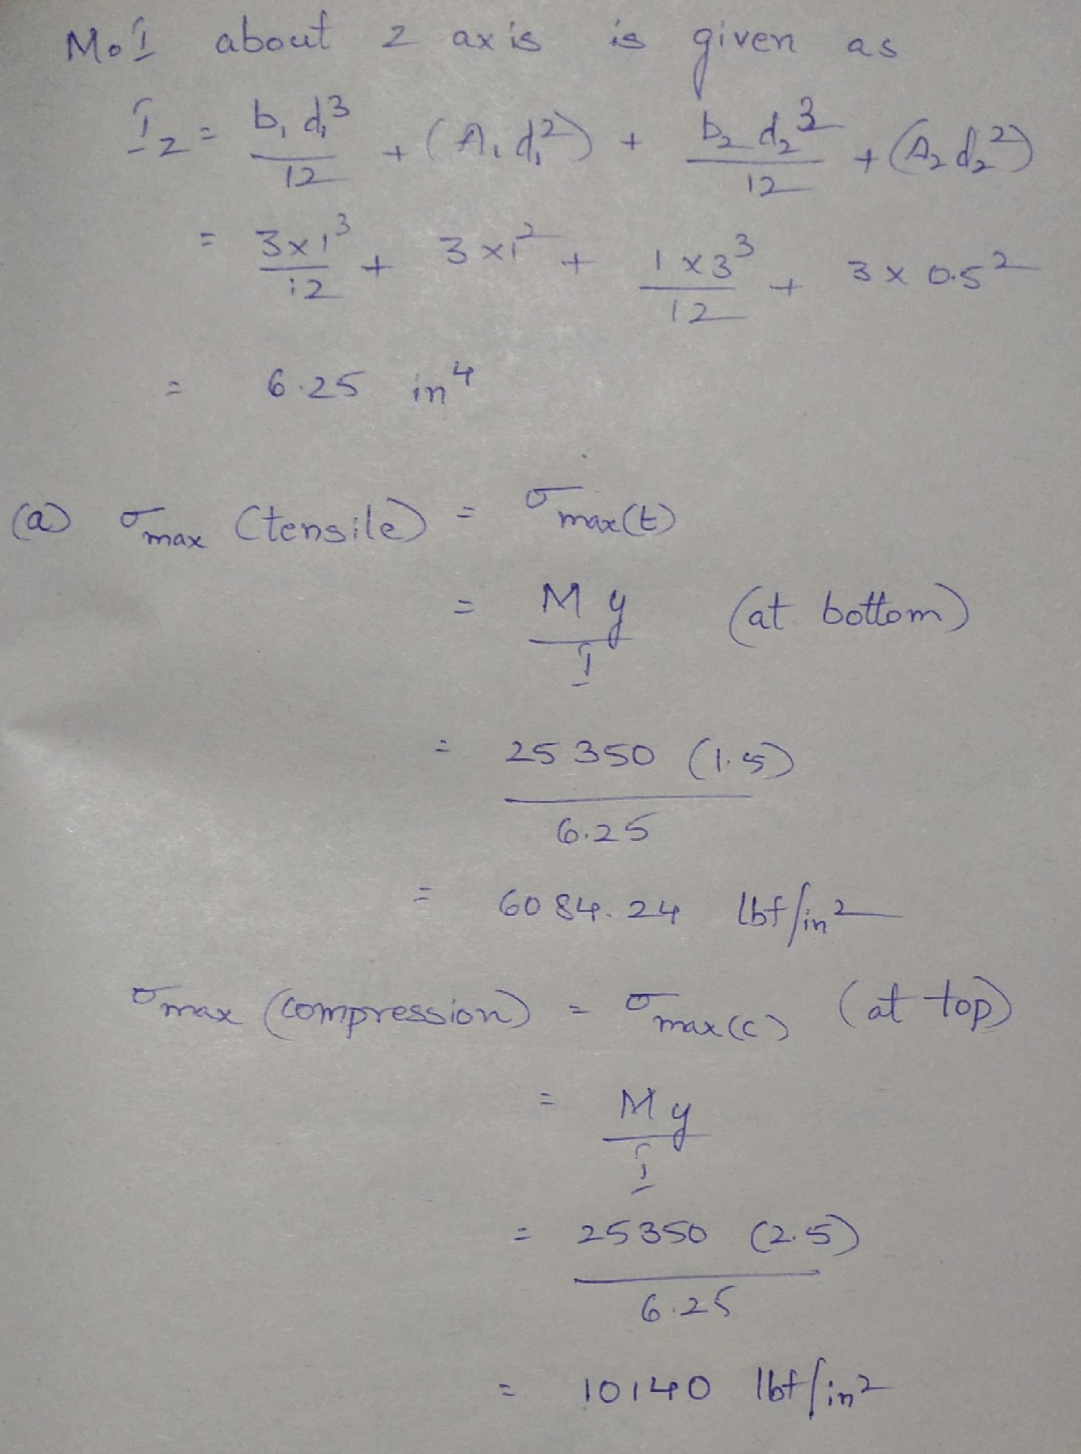 MoI about z axis is given as
I_z = b₁d₁³/12 + (A₁d₁²) + b₂d₂³/12 + (A₂d₂²)
= 3×1³/12 + 3×1² + 1×3³/12 + 3×0.5²
= 6.25 in⁴
(a) σ_max (tensile) = σ_max(t)
= My/I (at bottom)
= 25350 (1.5)/6.25
= 6084.24 lbf/in²
σ_max (compression) = σ_max(c) (at top)
= My/I
= 25350 (2.5)/6.25
= 10140 lbf/in²